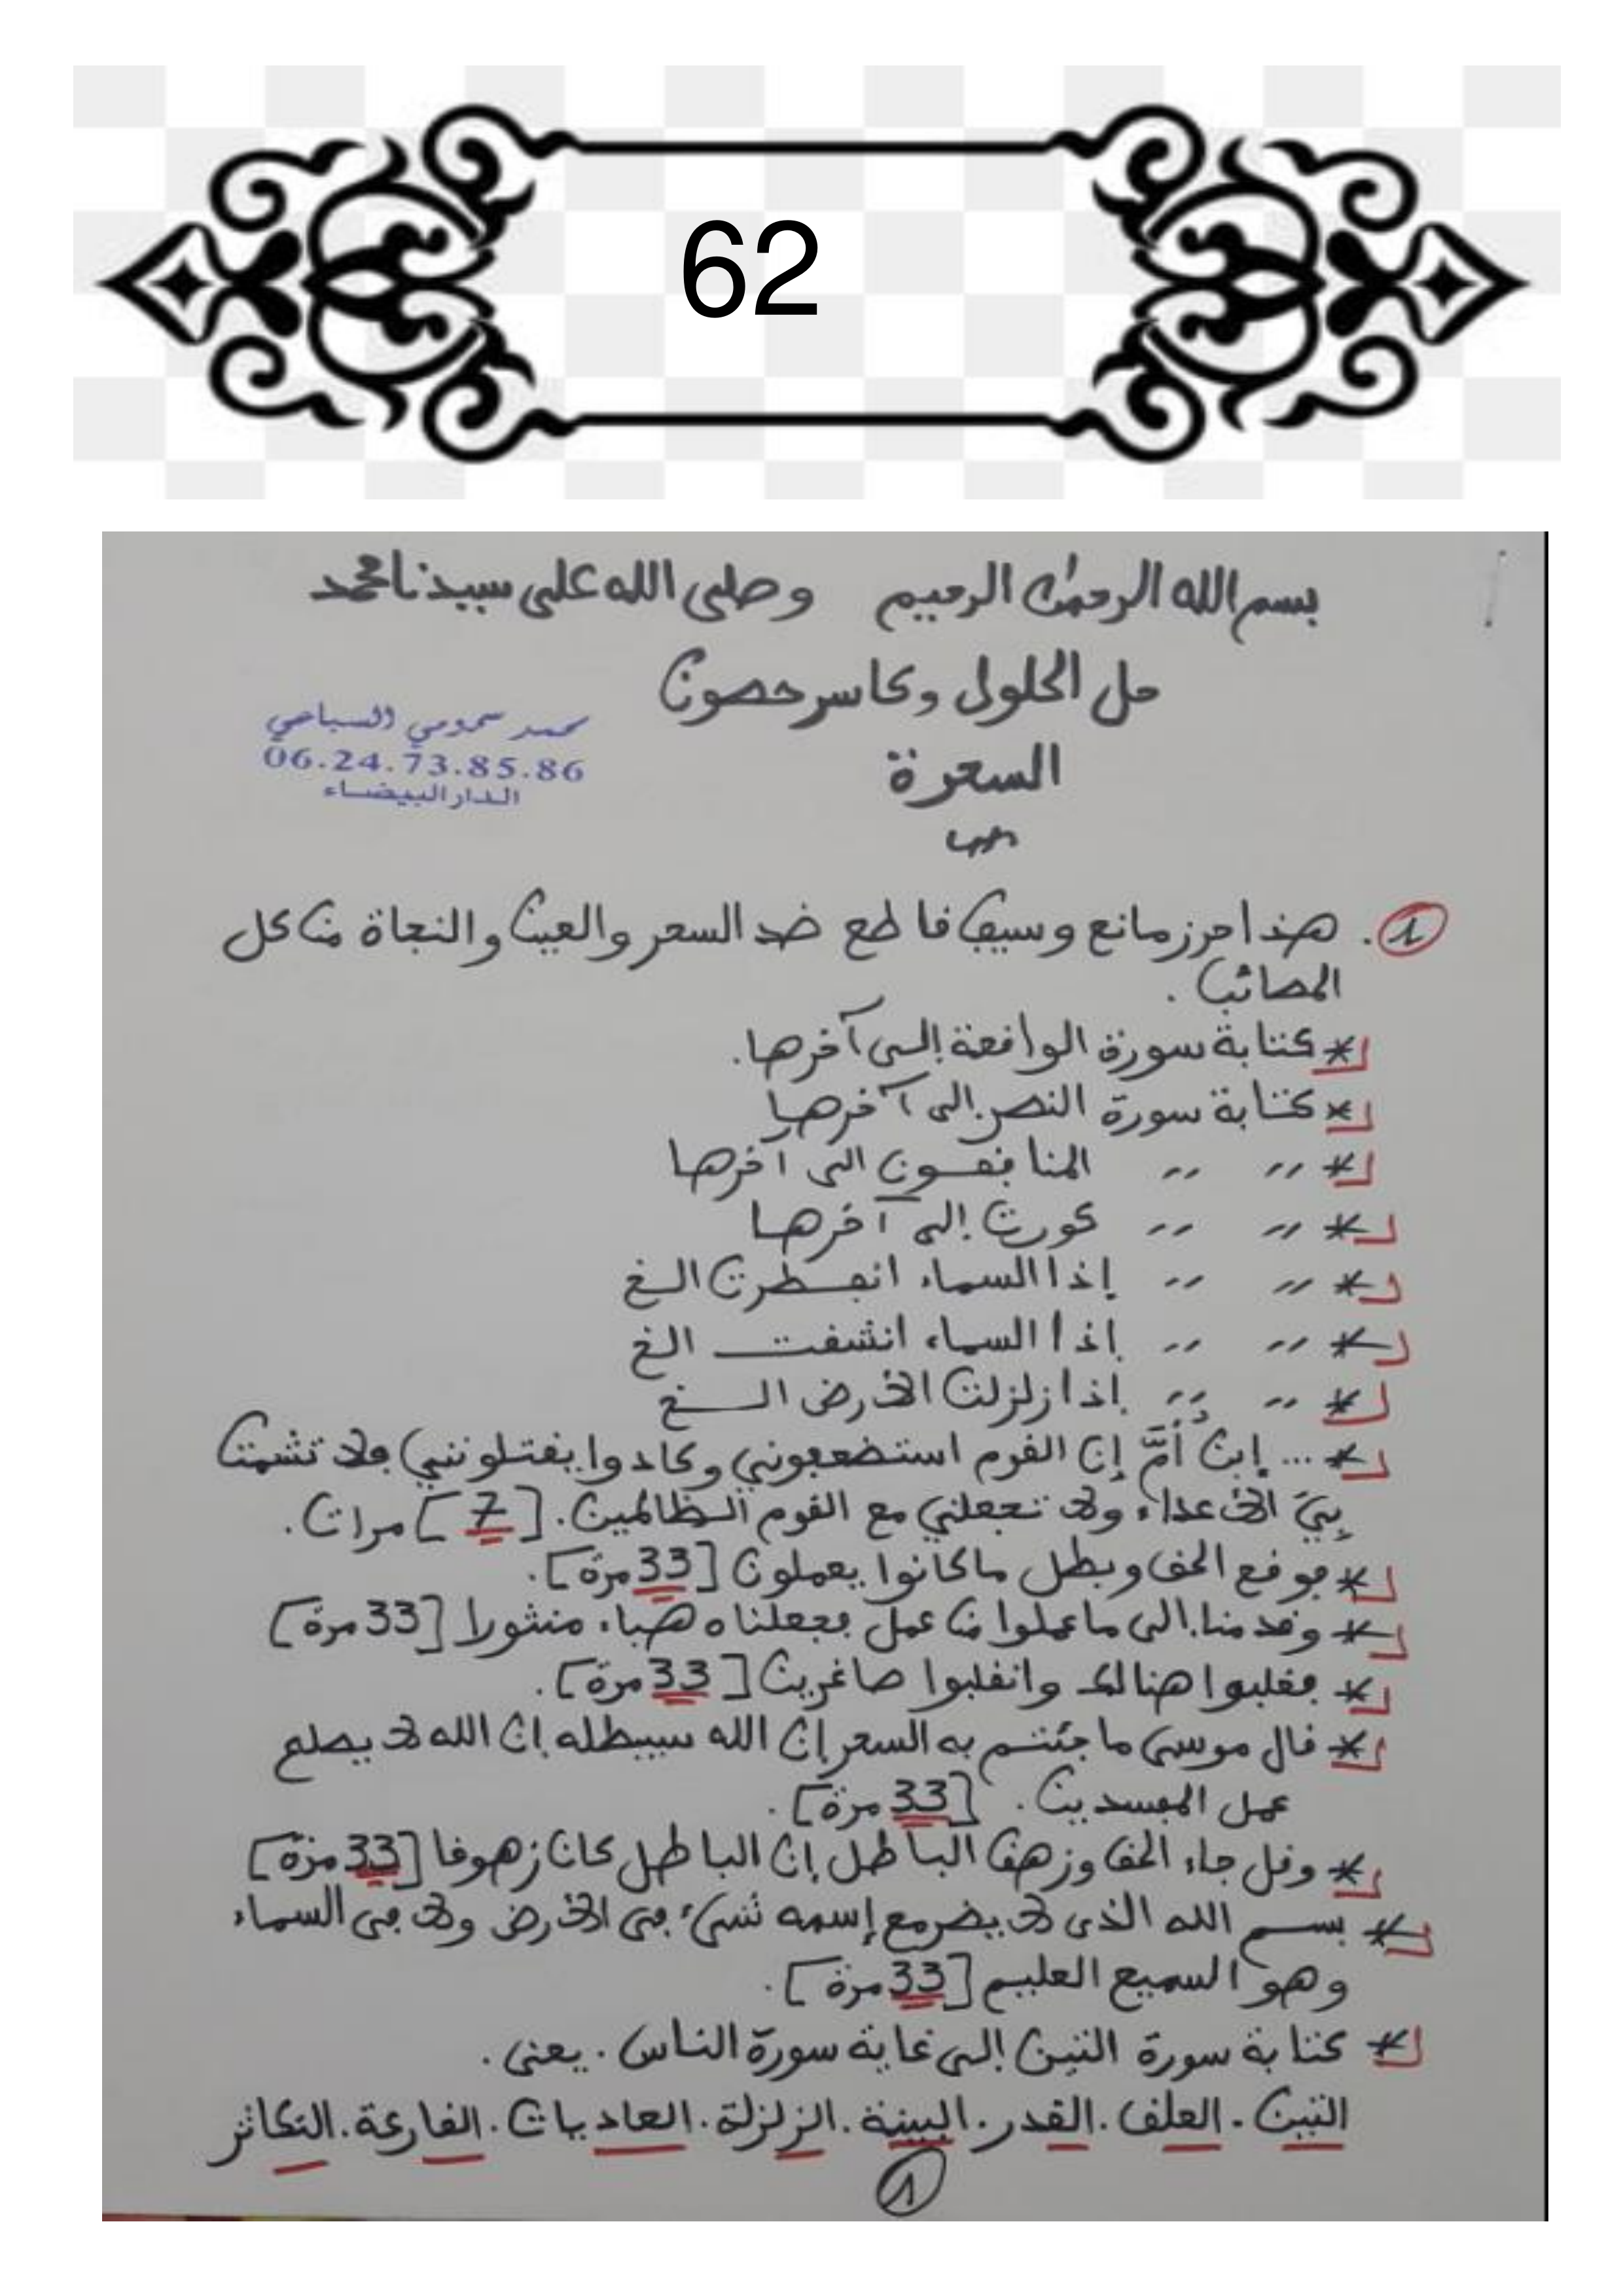 62
بسم الله الرحمن الرحيم وصلى الله على سيدنا محمد
حل الحلول وكاسر حصون
محمد سمومي السباعي
06.24.73.85.86
الدار البيضاء
السحرة
1. هذا حرز مانع وسيف قاطع ضد السحر والعين والنجاة من كل
المصائب.
* كتابة سورة الواقعة إلى آخرها.
* كتابة سورة النصر إلى آخرها
* ,, ,, المنافقون الى آخرها
* ,, ,, كورت إلى آخرها
* ,, ,, إذا السماء انفطرت الخ
* ,, ,, إذا السماء انشقت الخ
* ,, ,, إذا زلزلت الأرض الخ
* ... إبن أُمَّ إن القوم استضعفوني وكادوا يقتلونني فلا تشمت
بِيَ الأعداء ولا تجعلني مع القوم الظالمين. [7] مرات.
* فوقع الحق وبطل ما كانوا يعملون [33 مرة].
* وقدمنا إلى ما عملوا من عمل فجعلناه هباء منثورا [33 مرة]
* فغلبوا هنالك وانقلبوا صاغرين [33 مرة].
* قال موسى ما جئتم به السحر إن الله سيبطله إن الله لا يصلح
عمل المفسدين. [33 مرة].
* وقل جاء الحق وزهق الباطل إن الباطل كان زهوقا [33 مرة]
* بسم الله الذى لا يضر مع إسمه شيء فى الأرض ولا فى السماء
وهو السميع العليم [33 مرة].
* كتابة سورة التين إلى غاية سورة الناس. يعنى.
التين. العلق. القدر. البينة. الزلزلة. العاديات. القارعة. التكاثر
1